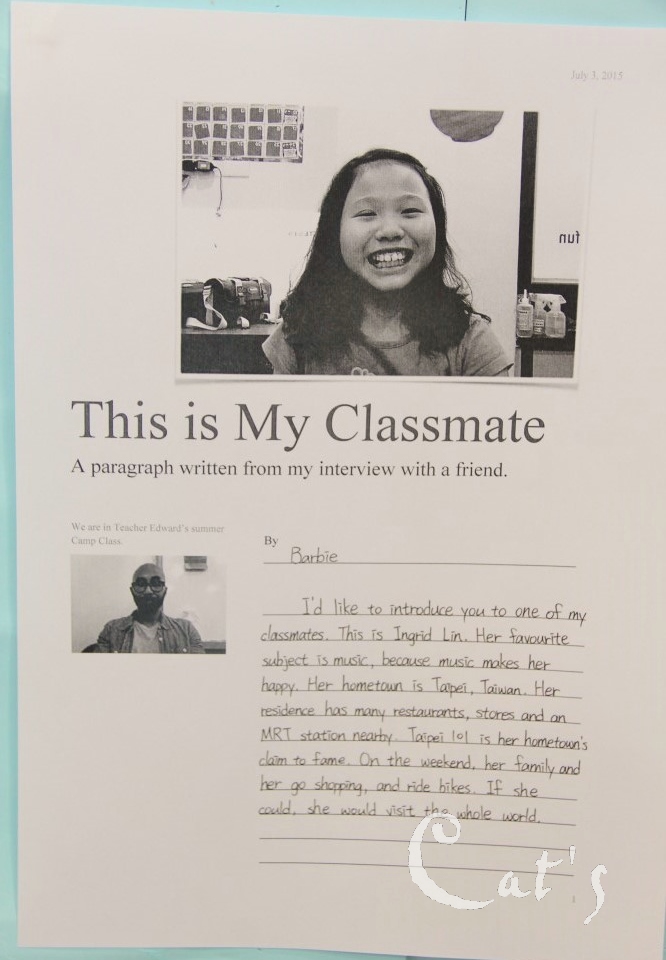 July 3, 2015
fun
This is My Classmate
A paragraph written from my interview with a friend.
We are in Teacher Edward's summer
Camp Class.
By
Barbie
I'd like to introduce you to one of my
classmates. This is Ingrid Lin. Her favourite
subject is music, because music makes her
happy. Her hometown is Taipei, Taiwan. Her
residence has many restaurants, stores and an
MRT station nearby. Taipei 101 is her hometown's
claim to fame. On the weekend, her family and
her go shopping, and ride bikes. If she
could, she would visit the whole world.
Cat's
1